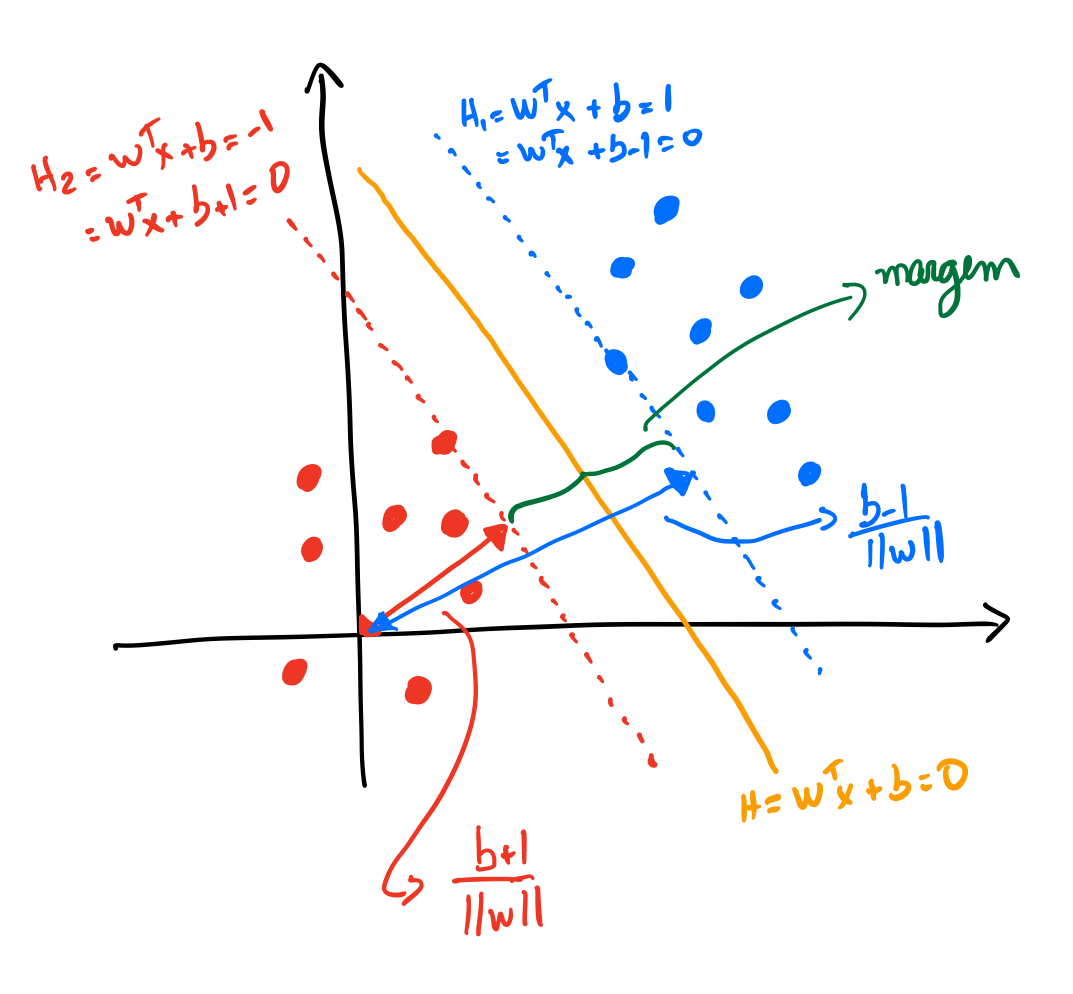 H₁ = wᵀx + b = 1
= wᵀx + b-1 = 0
H₂ = wᵀx + b = -1
= wᵀx + b+1 = 0
margem
b-1
||w||
H = wᵀx + b = 0
b+1
||w||